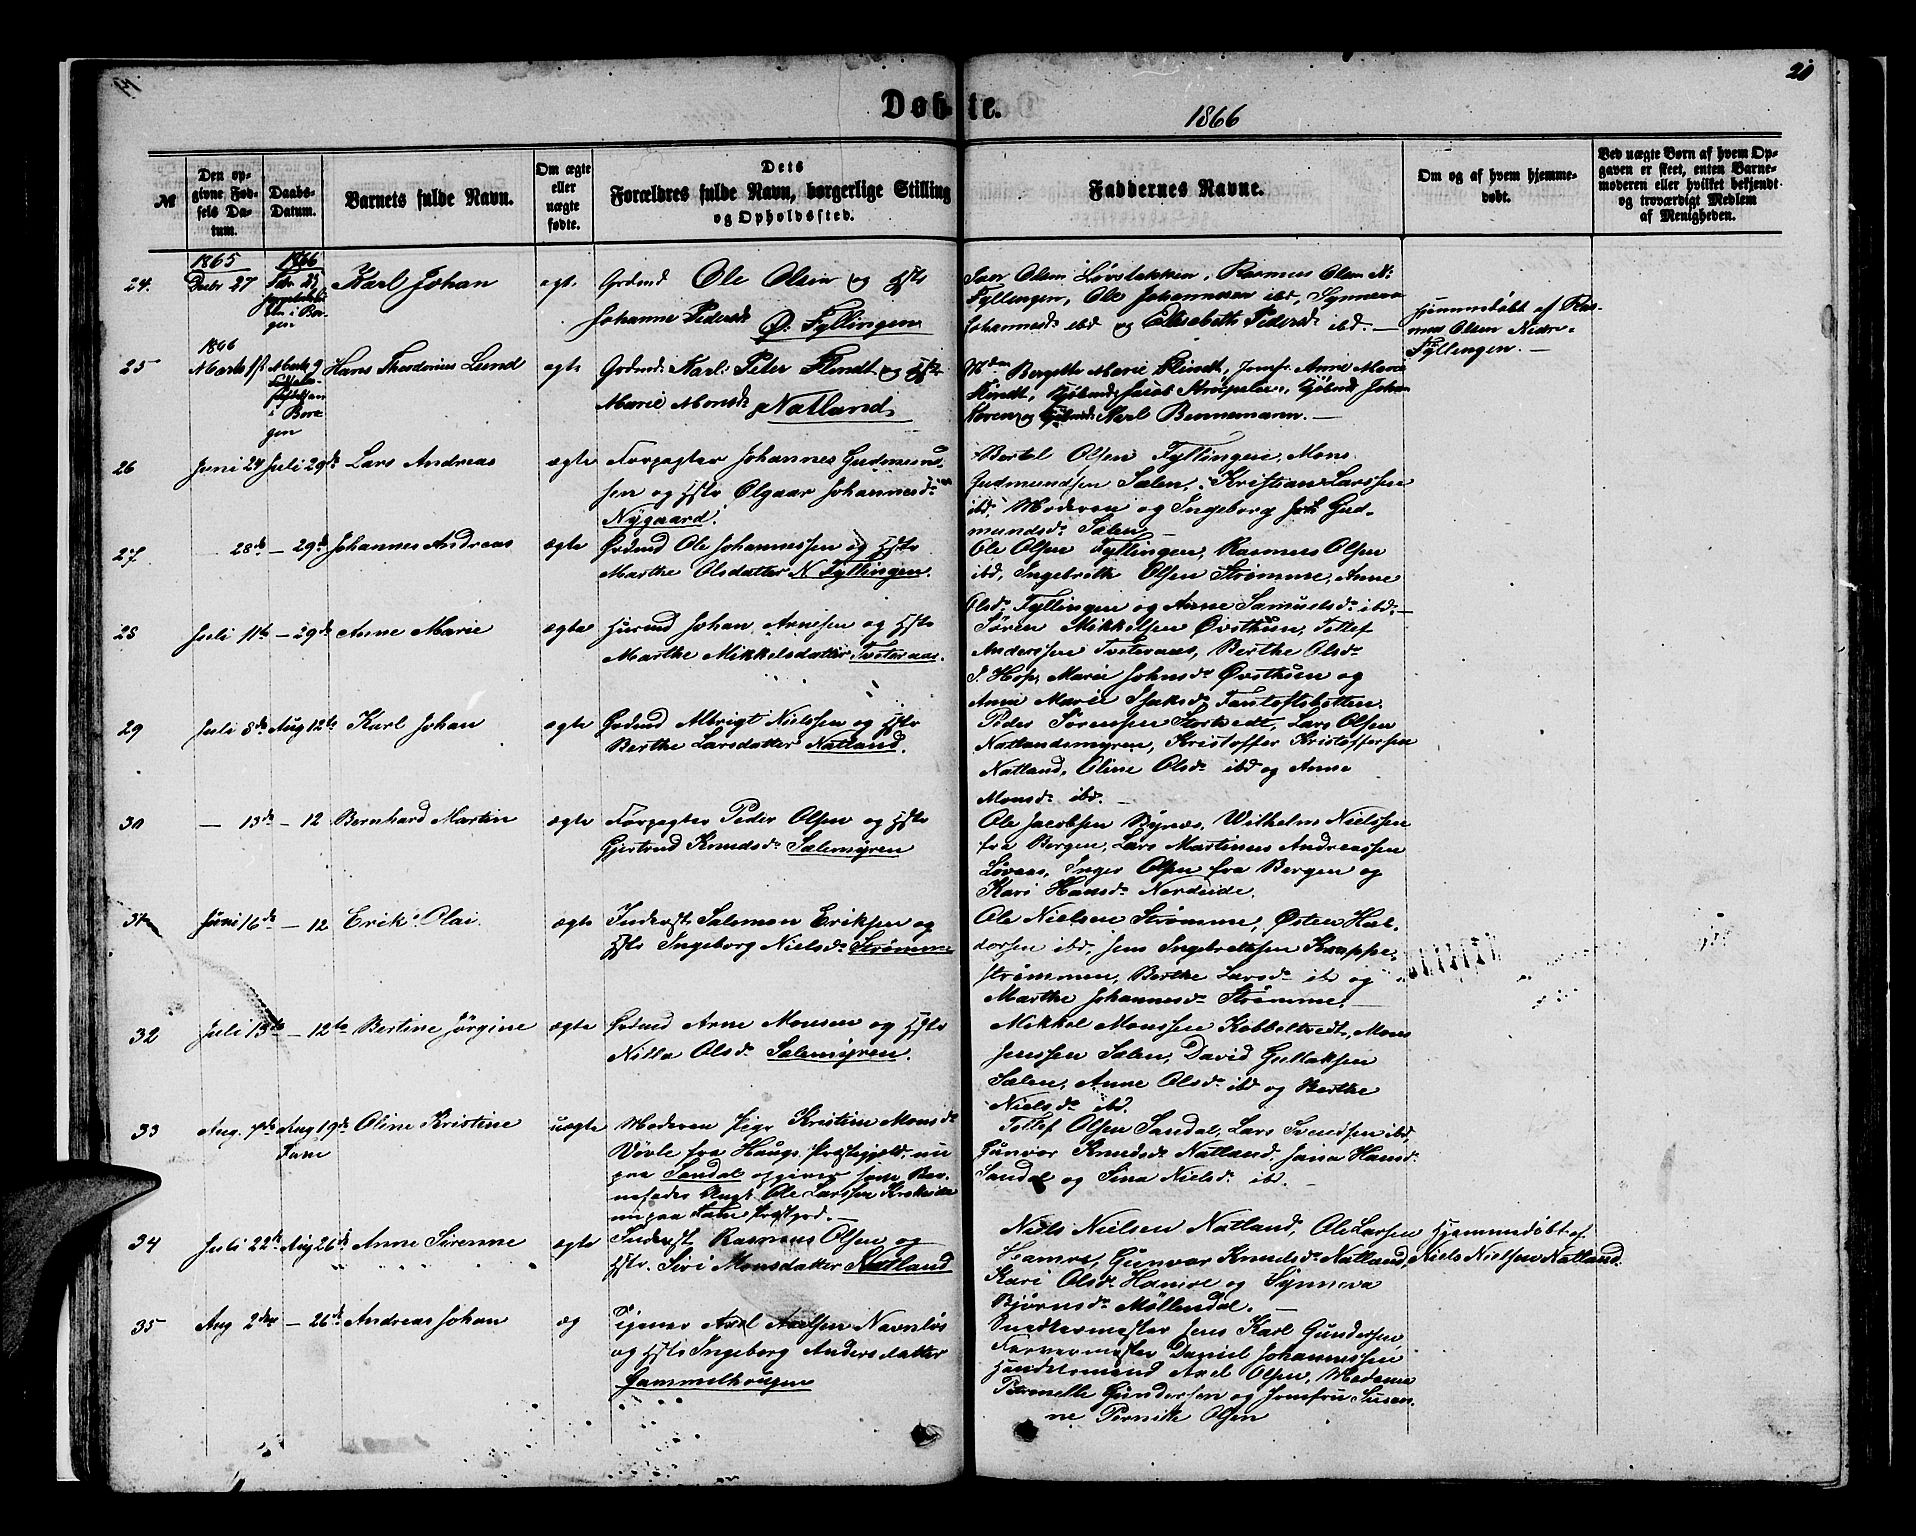 20
Døbte.
1866
№
Den op-
givne Fød-
sels Da-
tum.
Daabs-
Datum.
Barnets fulde Navn.
Om ægte
eller
uægte
fødte.
Dets
Forældres fulde Navn, borgerlige Stilling
og Opholdssted.
Faddernes Navne.
Om og af hvem hjemme-
døbt.
Ved uægte Børn af hvem Op-
gaven er skeet, enten Barne-
moderen eller hvilket bekjendt
og troværdigt Medlem
af Menigheden.
1865 1866
24. Decbr 27 Karl Johan ægte Grdmd Ole Olsen og Hstr
Johanne Pedersdr Ø. Fyllingen
Iver Olsen Løvstakken, Rasmus Olsen N.
Fyllingen, Ole Johannesen ibd, Synneva
Johannesdr ibd og Elisabeth Pedersdr ibd. —
Hjemmedøbt af Ras-
mus Olsen Nedre
Fyllingen. —
1866
25 Marts 1st Marts 9 i Bergen Hans Theodorius Lund ægte Grdmd. Karl Peter Flindt og Hstr
Marie Monsdr Natland
Bergette Marie Flindt, Jomfr. Anne Marie
Flindt, Jacob Johan
og Karl Bennemann. —
26 Juni 24 Juli 29de Lars Andreas ægte Forpagter Johannes Gudmund-
sen og Hstr Olgaar Johannesdr
Nygaard.
Bertel Olsen Fyllingen, Mons
Gudmundsen Sælen, Kristian Larssen
ibd, Moderen og Ingeborg Gud-
mundsdr Sælen —
27. — 28de — 29de Johannes Andreas ægte Grdmd Ole Johannessen og Hstr
Marthe Olsdatter N Fyllingen.
Ole Olsen Fyllingen, Rasmus Olsen
ibd, Ingebreth Olsen Strømme, Anne
Olsdr Fyllingen og Anne Samuelsdr ibd. —
28 Juli 11te — 29de Anne Marie ægte Husmd Johan Arnesen og Hstr
Marthe Mikkelsdatter Tveteraas.
Søren Mikkelsen Øvsthun, Tollef
Anderssen Tveteraas, Berthe Olsdr
Hop, Marie Johnsdr Øvsthun og
Anne Marie Isaksdr Fantoftbotten.
29 Juli 8de Aug 12te Karl Johan ægte Grdmd Albrigt Nielssen og Hstr
Berthe Larsdatter Natland.
Peder Sørensen Storetvedt, Lars Olsen
Natlandsmyren, Kristoffer Kristoffersen
Natland, Oline Olsdr ibd og Anne
Monsdr ibd. —
30 — 13de — 12 Bernhard Martin ægte Forpagter Peder Olsen og Hstr
Gjertrud Knudsdr Sælemyren
Ole Jacobsen Bønæs, Wilhelm Nielssen
fra Bergen, Lars Martinus Andreassen
Løvaas, Inger Olsen fra Bergen og
Kari Hansdr Nordeide.
31 Juni 16de — 12 Erik Olai ægte Inderst Salemon Eriksen og
Hstr Ingeborg Nielsdr Strømme
Ole Nielsen Strømme, Østen Hal-
dorsen ibd, Jens Ingebretsen Knappe-
strømmen, Berthe Larsdr ibd og
Marthe Johannesdr Strømme. —
32 Juli 13de — 12te Bertine Jørgine ægte Grdmd Arne Monsen og Hstr
Nilla Olsdr Sælemyren.
Mikkel Monssen Kobbeltvedt, Mons
Jenssen Sælen, David Gullaksen
Sælen, Anne Olsdr ibd og Berthe
Nielsdr ibd.
33 Aug. 7de Aug 19de Oline Kristine uægte Moderen Pige Kristine Monsdr
Vøvle fra Haugs Præstegjeld, nu
paa Sandal opgiver som Bar-
nefader Ungk Ole Larssen
nu paa Præstgrd. —
Tollef Olsen Sandal, Lars Svendsen ibd,
Gunvor Knudsdr Natland, Jana Hansdr
Sandal og Sina Nielsdr ibd. —
34 Juli 22de Aug 26de Anne Sirenne ægte Inderst Rasmus Olsen og
Hstr. Siri Monsdatter Natland
Niels Nielsen Natland, Ole Larsen
Hamre, Gunvor Knudsdr Natland,
Kari Olsdr Hamre og Synneva
Bjørnsdr Møllendal. —
Hjemmedøbt af
Niels Nielsen Natland.
35 Aug 2den — 26de Andreas Johan æg Tjener Axel Axelsen Navnløs
og Hstr Ingeborg Andersdatter
Gammelhougen
Snedkermester Jens Karl Gundersen,
Farvermester Daniel Johannessen,
Handelsmand Axel Olsen, Madame
Petronelle Gundersen og Jomfru Susan-
ne Pernille Olsen